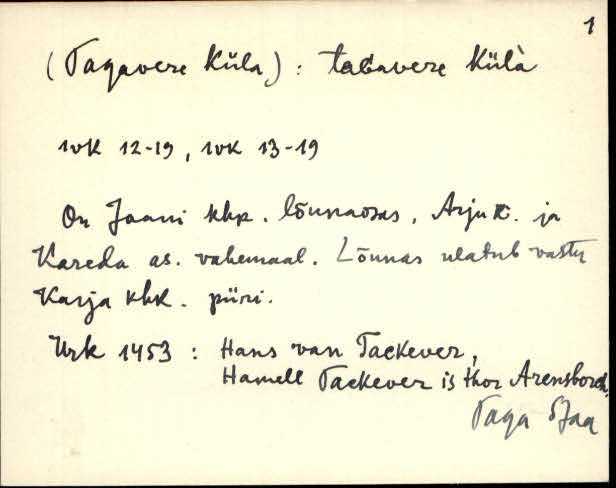 1
(Tagavere Küla) : tagavere Külà
1vk 12-19, 1vk 13-19
On Jaani khk. lõunaosas, Arju k. ja
Kareda as. vahemaal. Lõunas ulatub vastu
Karja khk. piiri.
Urk 1453 : Hans van Tackever,
Hamell Tackever is thor Arensborch,
Taga SJaa